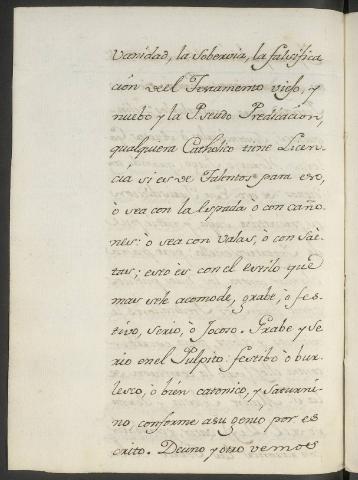 Vanidad, la Sobervia, la falsifica
cion de el Testamento viejo, y
nuebo y la Pseudo Predicacion,
qualquera Catholico tiene Licen-
cia si es de Talentos para eso,
ò sea con la Espada ò con caño-
nes: ò sea con valas, ò con Sàe-
tas; esto ès con el estilo que
mas sele acomode, grabe, ò fes-
tivo, serio, ò Jocoso. Grabe y Se-
rio en el Pulpito: festibo ò bur-
lesco, ò bièn catonico, y saturni-
no, conforme a su genio por es
crito. De uno y otro vemos